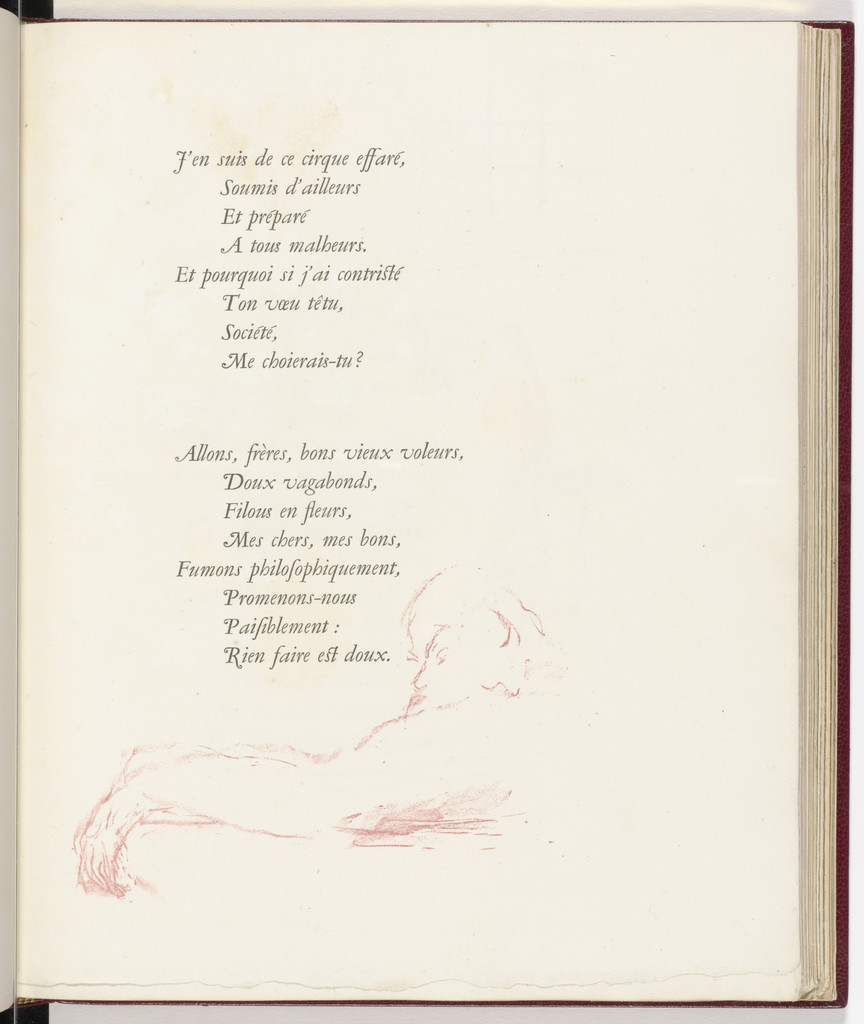 J'en suis de ce cirque effaré,
Soumis d'ailleurs
Et préparé
A tous malheurs.
Et pourquoi si j'ai contristé
Ton vœu têtu,
Société,
Me choierais-tu?
Allons, frères, bons vieux voleurs,
Doux vagabonds,
Filous en fleurs,
Mes chers, mes bons,
Fumons philoſophiquement,
Promenons-nous
Paiſiblement :
Rien faire est doux.